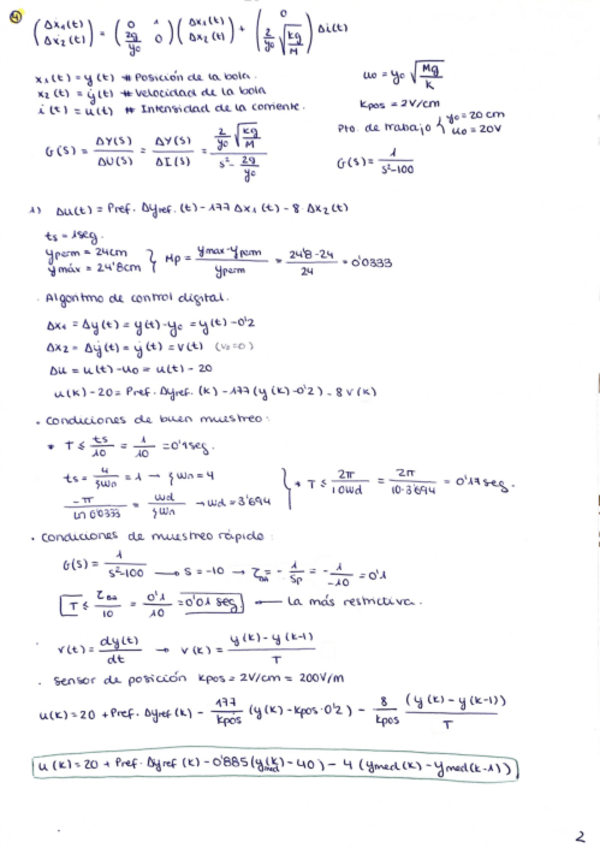 4
(Δẋ1(t) Δẋ2(t)) = (0 1 2g/y0 0) (Δx1(t) Δx2(t)) + (0 2/y0 √(kg/M)) Δi(t)
x1(t) = y(t) # Posición de la bola.
x2(t) = ẏ(t) # Velocidad de la bola
i(t) = u(t) # Intensidad de la corriente.
u0 = y0 √(Mg/K)
Kpos = 2V/cm
Pto. de trabajo { y0 = 20 cm u0 = 20V
G(s) = ΔY(s)/ΔU(s) = ΔY(s)/ΔI(s) = (2/y0 √(kg/M))/(s² - 2g/y0)
G(s) = 1/(s²-100)
1) Δu(t) = Pref. Δyref.(t) - 177 Δx1(t) - 8 · Δx2(t)
ts = 1seg.
yperm = 24cm
ymáx = 24'8cm } Mp = (ymax - yperm)/yperm = (24'8 - 24)/24 = 0'0333
· Algoritmo de control digital.
Δx1 = Δy(t) = y(t) - y0 = y(t) - 0'2
Δx2 = Δẏ(t) = ẏ(t) = v(t) (v0=0)
Δu = u(t) - u0 = u(t) - 20
u(k) - 20 = Pref. Δyref.(k) - 177(y(k) - 0'2) - 8v(k)
· Condiciones de buen muestreo:
* T ≤ ts/10 = 1/10 = 0'1seg.
ts = 4/ξwn = 1 → ξwn = 4
-π/Ln 0'0333 = wd/ξwn → wd = 3'694
} * T ≤ 2π/10wd = 2π/10·3'694 = 0'17seg.
· Condiciones de muestreo rápido:
G(s) = 1/(s²-100) → s = -10 → ζBA = -1/Sp = -1/-10 = 0'1
T ≤ ζBA/10 = 0'1/10 = 0'01 seg ← La más restrictiva.
· v(t) = dy(t)/dt → v(k) = (y(k) - y(k-1))/T
· Sensor de posición Kpos = 2V/cm = 200V/m
u(k) = 20 + Pref. Δyref(k) - 177/Kpos (y(k) - Kpos·0'2) - 8/Kpos (y(k) - y(k-1))/T
u(k) = 20 + Pref. Δyref(k) - 0'885(ymed(k) - 40) - 4(ymed(k) - ymed(k-1))
2